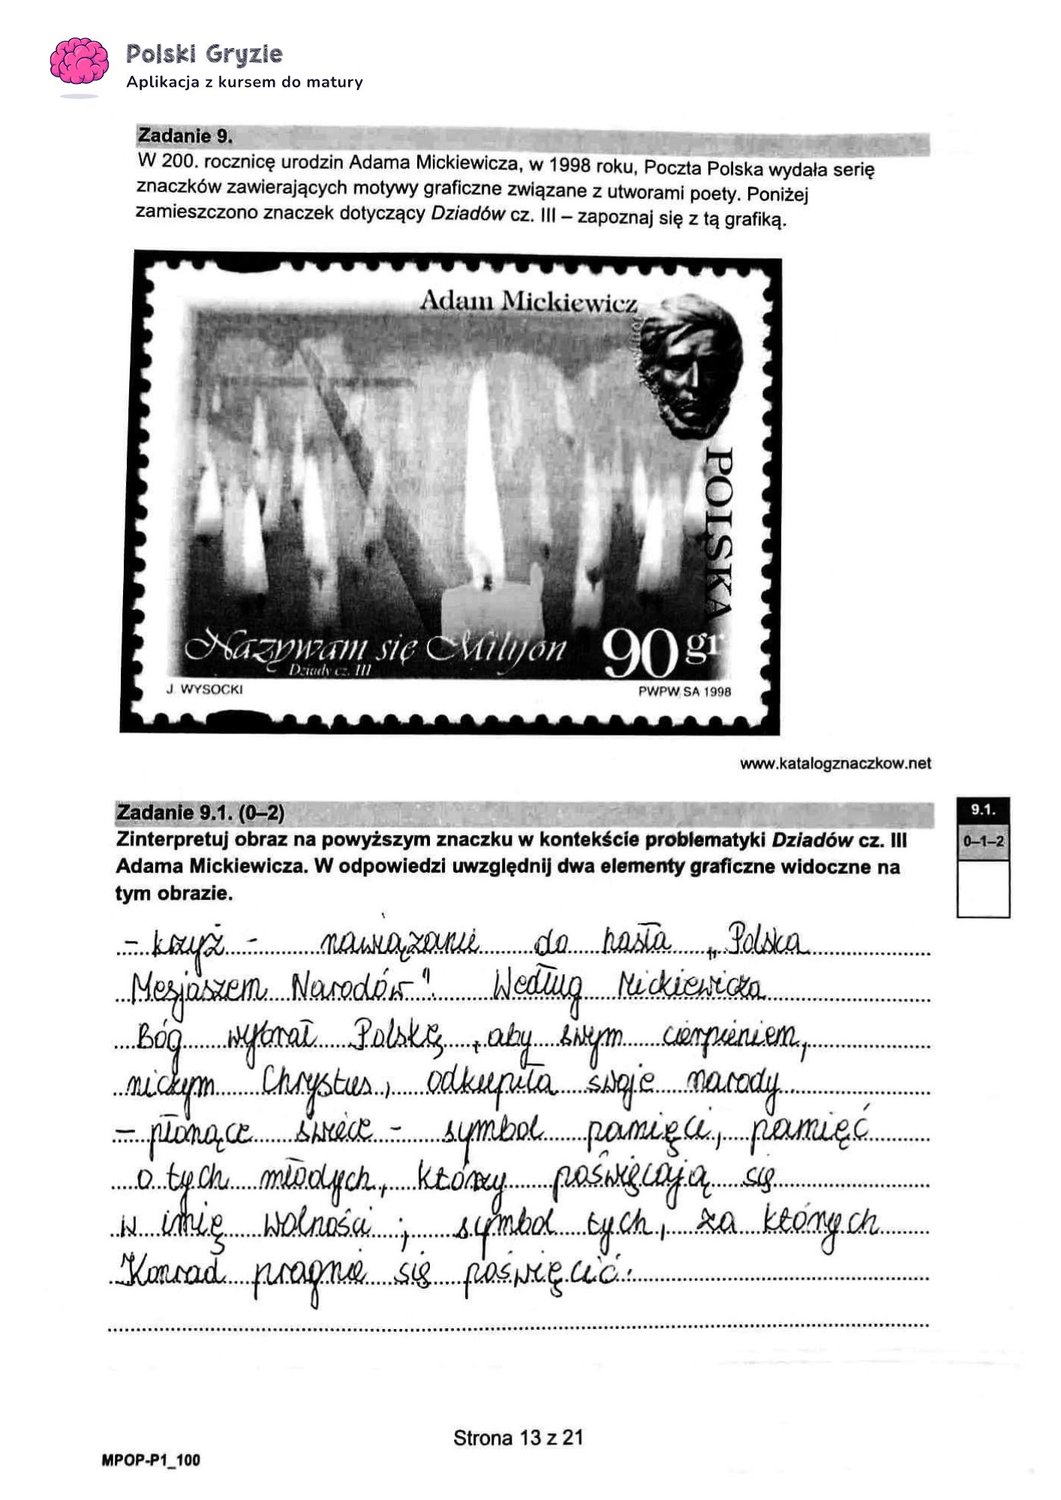 Polski Gryzie
Aplikacja z kursem do matury
Zadanie 9.
W 200. rocznicę urodzin Adama Mickiewicza, w 1998 roku, Poczta Polska wydała serię
znaczków zawierających motywy graficzne związane z utworami poety. Poniżej
zamieszczono znaczek dotyczący Dziadów cz. III – zapoznaj się z tą grafiką.
Adam Mickiewicz
POLSKA
Nazywam się Milijon
Dziady cz. III
90 gr
J. WYSOCKI
PWPW SA 1998
www.katalogznaczkow.net
Zadanie 9.1. (0–2)
Zinterpretuj obraz na powyższym znaczku w kontekście problematyki Dziadów cz. III
Adama Mickiewicza. W odpowiedzi uwzględnij dwa elementy graficzne widoczne na
tym obrazie.
9.1.
0–1–2
- krzyż - nawiązanie do hasła „Polska
Mesjaszem Narodów". Według Mickiewicza
Bóg wybrał Polskę, aby swym cierpieniem,
niczym Chrystus, odkupiła swoje narody
- płonące świece - symbol pamięci, pamięć
o tych młodych, którzy poświęcają się
w imię wolności; symbol tych, za których
Konrad pragnie się poświęcić.
Strona 13 z 21
MPOP-P1_100